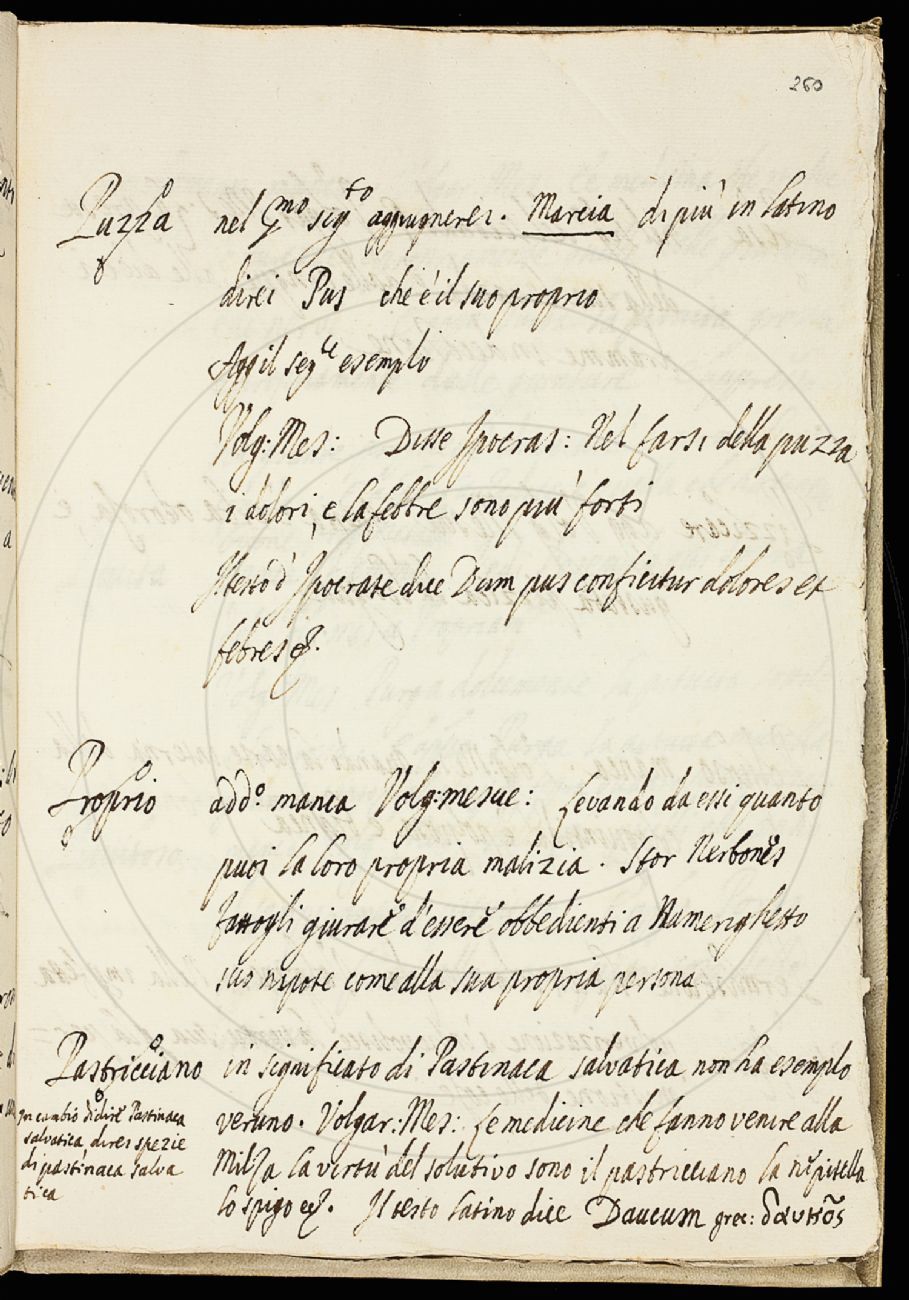 260
Puzza nel pmo sigto aggiugnerei. Marcia di più in latino
direi Pus che è il suo proprio
Agg il segte esemplo
Volg: Mes: Disse Ipocras: Nel farsi della puzza
i dolori, e la febbre sono più forti
Il testo d' Ipocrate dice Dum pus conficitur dolores et
febres &.
Proprio addo. manca Volg: mesue: Levando da essi quanto
puoi la loro propria malizia. Stor Nerbones
fattogli giurare d'essere obbedienti a Namerighetto
suo nipote come alla sua propria persona
Pastricciano in significato di Pastinaca salvatica non ha esemplo
veruno. Volgar: Mes: Le medicine che fanno venire alla
Milza la virtù del solutivo sono il pastricciano la nepitella
lo spigo &. Il testo latino dice Daucum grec:
In cambio di dire Pastinaca
salvatica direi spezie
di pastinaca salva
tica